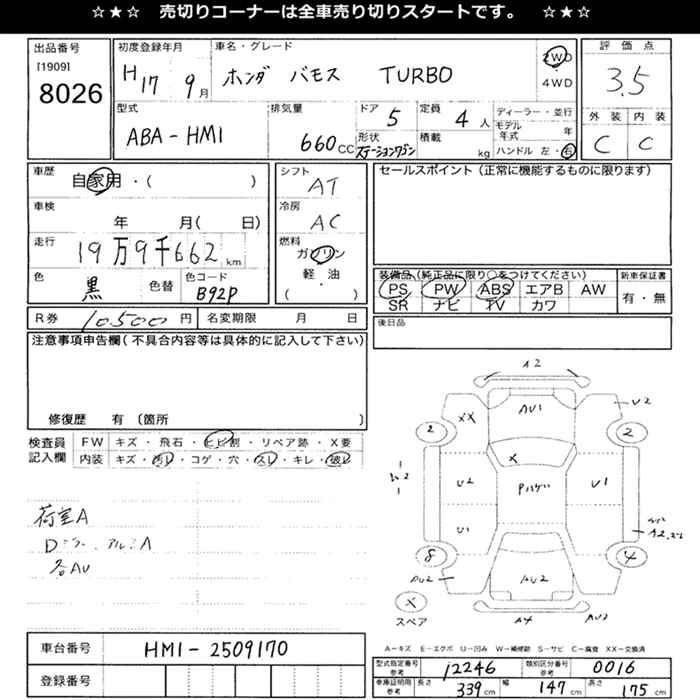 ☆★☆ 売切りコーナーは全車売り切りスタートです。 ☆★☆
出品番号
[1909]
8026
初度登録年月
H17 9月
車名・グレード
ホンダ バモス TURBO
2WD
4WD
評価点
3.5
型式
ABA-HM1
排気量
660cc
ドア
5
形状
ステーションワゴン
定員
4人
積載
kg
ディーラー・並行
モデル年式 年
ハンドル 左・右
外装 内装
C C
車歴
自家用・( )
車検
年 月( 日)
走行
19万9千662 km
色
黒
色替
色コード
B92P
シフト
AT
冷房
AC
燃料
ガソリン
軽・油
( )
セールスポイント(正常に機能するものに限ります)
装備品(純正品に限り○をつけてください)
PS PW ABS エアB AW
SR ナビ TV カワ
新車保証書
有・無
R券 10,500円
名変期限 月 日
後日品
注意事項申告欄(不具合内容等は具体的に記入して下さい)
修復歴 有 〔箇所 〕
検査員記入欄
FW キズ・飛石・ヒビ割・リペア跡・X要
内装 キズ・汚レ・コゲ・穴・スレ・キレ・破レ
荷室A
Dミラー、アルミA
各AU
A2
AU1
XX
U2
2
2
X
U2
Pハゲ
U1
U1
8
4
AU2
AU2
X
スペア
A4
AU2
A-キズ E-エクボ U-凹み W-補修跡 S-サビ C-腐食 XX-交換済
車台番号
HM1-2509170
登録番号
型式指定番号 参考
12246
類別区分番号 参考
0016
車庫証明用 参考
長さ 339cm
幅 147cm
高さ 175cm